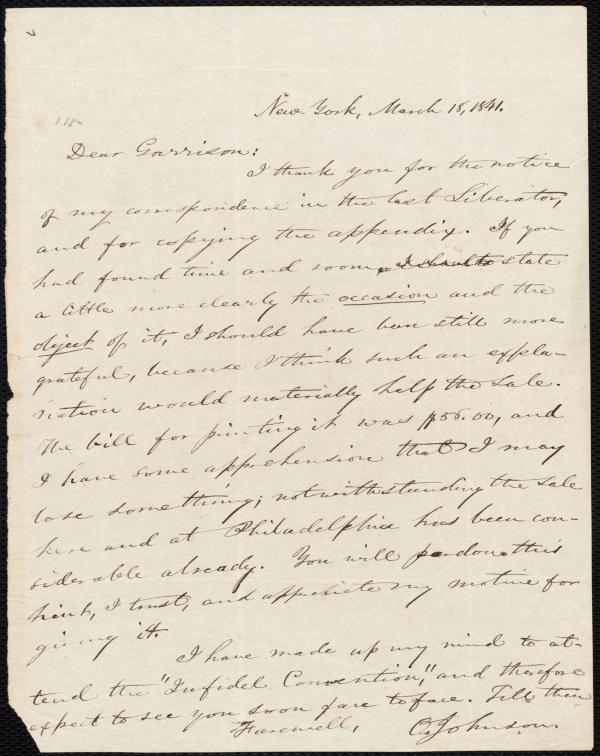 New York, March 18, 1841.
Dear Garrison:
I thank you for the notice
of my correspondence in the last Liberator,
and for copying the appendix. If you
had found time and room, I should to state
a little more clearly the occasion and the
object of it, I should have been still more
grateful, because I think such an expla-
nation would materially help the sale.
The bill for printing it was $56.00, and
I have some apprehension that I may
lose something; notwithstanding the sale
here and at Philadelphia has been con-
siderable already. You will pardon this
hint, I trust, and appreciate my motive for
giving it.
I have made up my mind to at-
tend the "Infidel Convention," and therefore
expect to see you soon face to face. Till then
Farewell, O. Johnson.